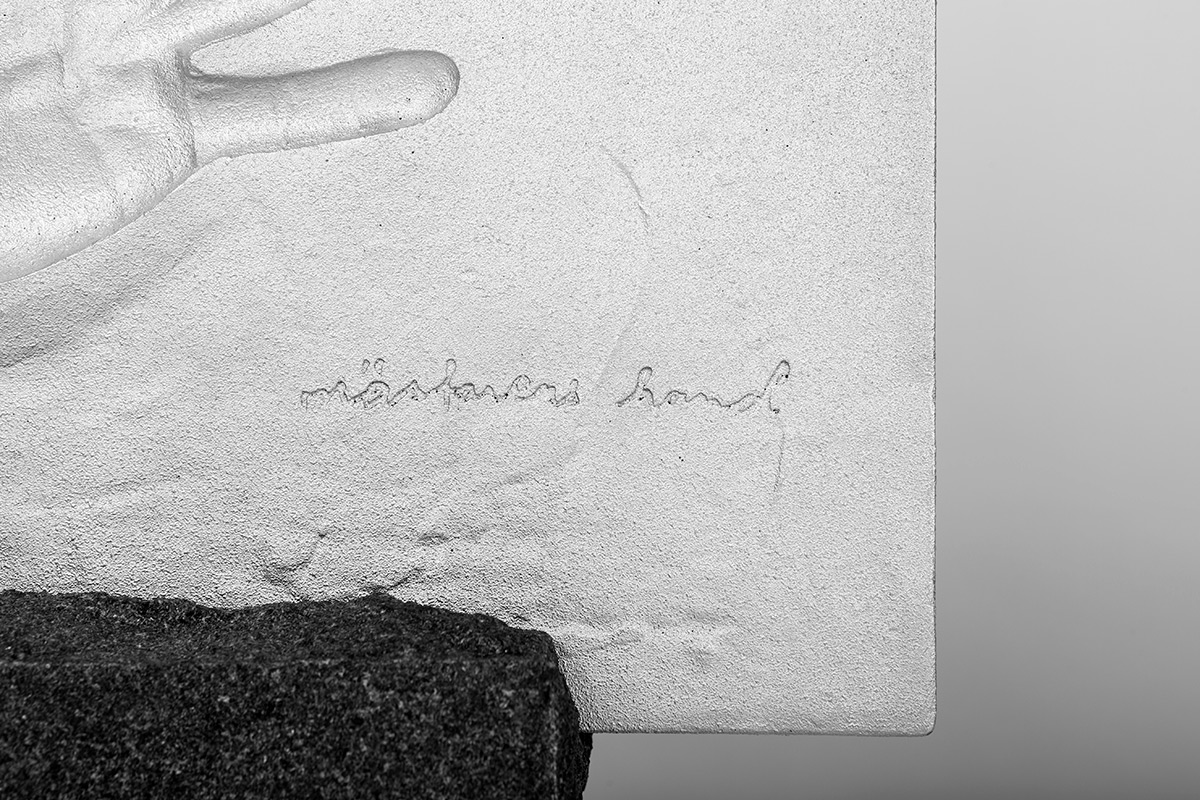 mästarens hand